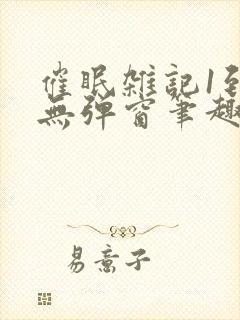 催眠雑記1至
無弹窗筆趣
易意子